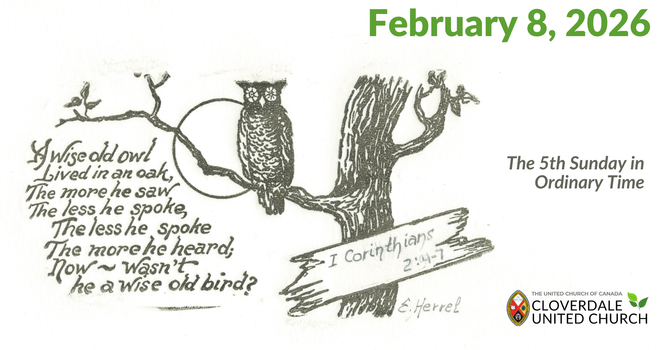 February 8, 2026
A wise old owl
Lived in an oak,
The more he saw
The less he spoke,
The less he spoke
The more he heard;
Now ~ Wasn't
he a wise old bird?
I Corinthians
2:4-7
E. Herrel
The 5th Sunday in
Ordinary Time
THE UNITED CHURCH OF CANADA
CLOVERDALE
UNITED CHURCH